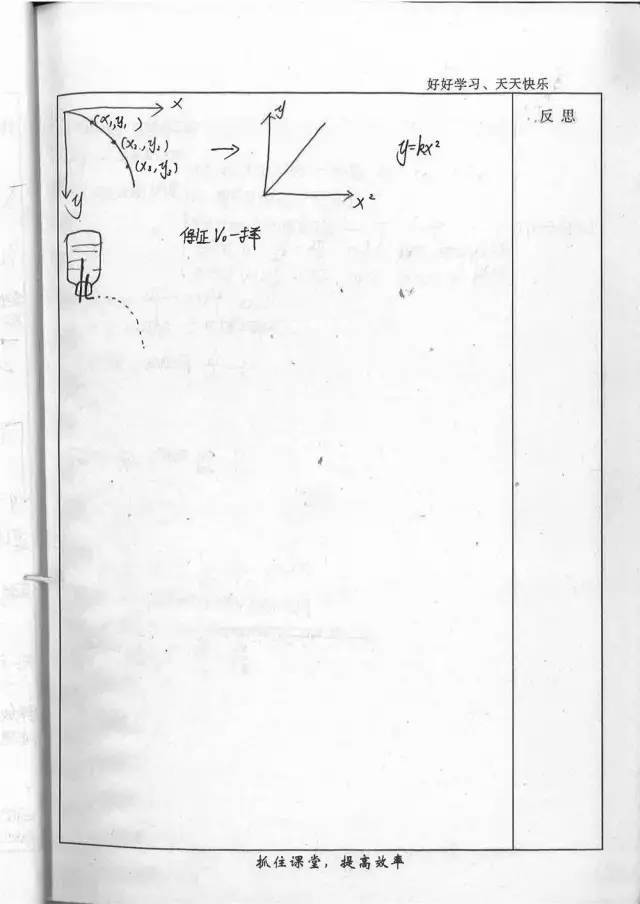 好好学习、天天快乐
反思
x
y
(x₁,y₁)
(x₂,y₂)
(x₃,y₃)
y
→
x²
y=kx²
y
保证V₀一样
抓住课堂，提高效率